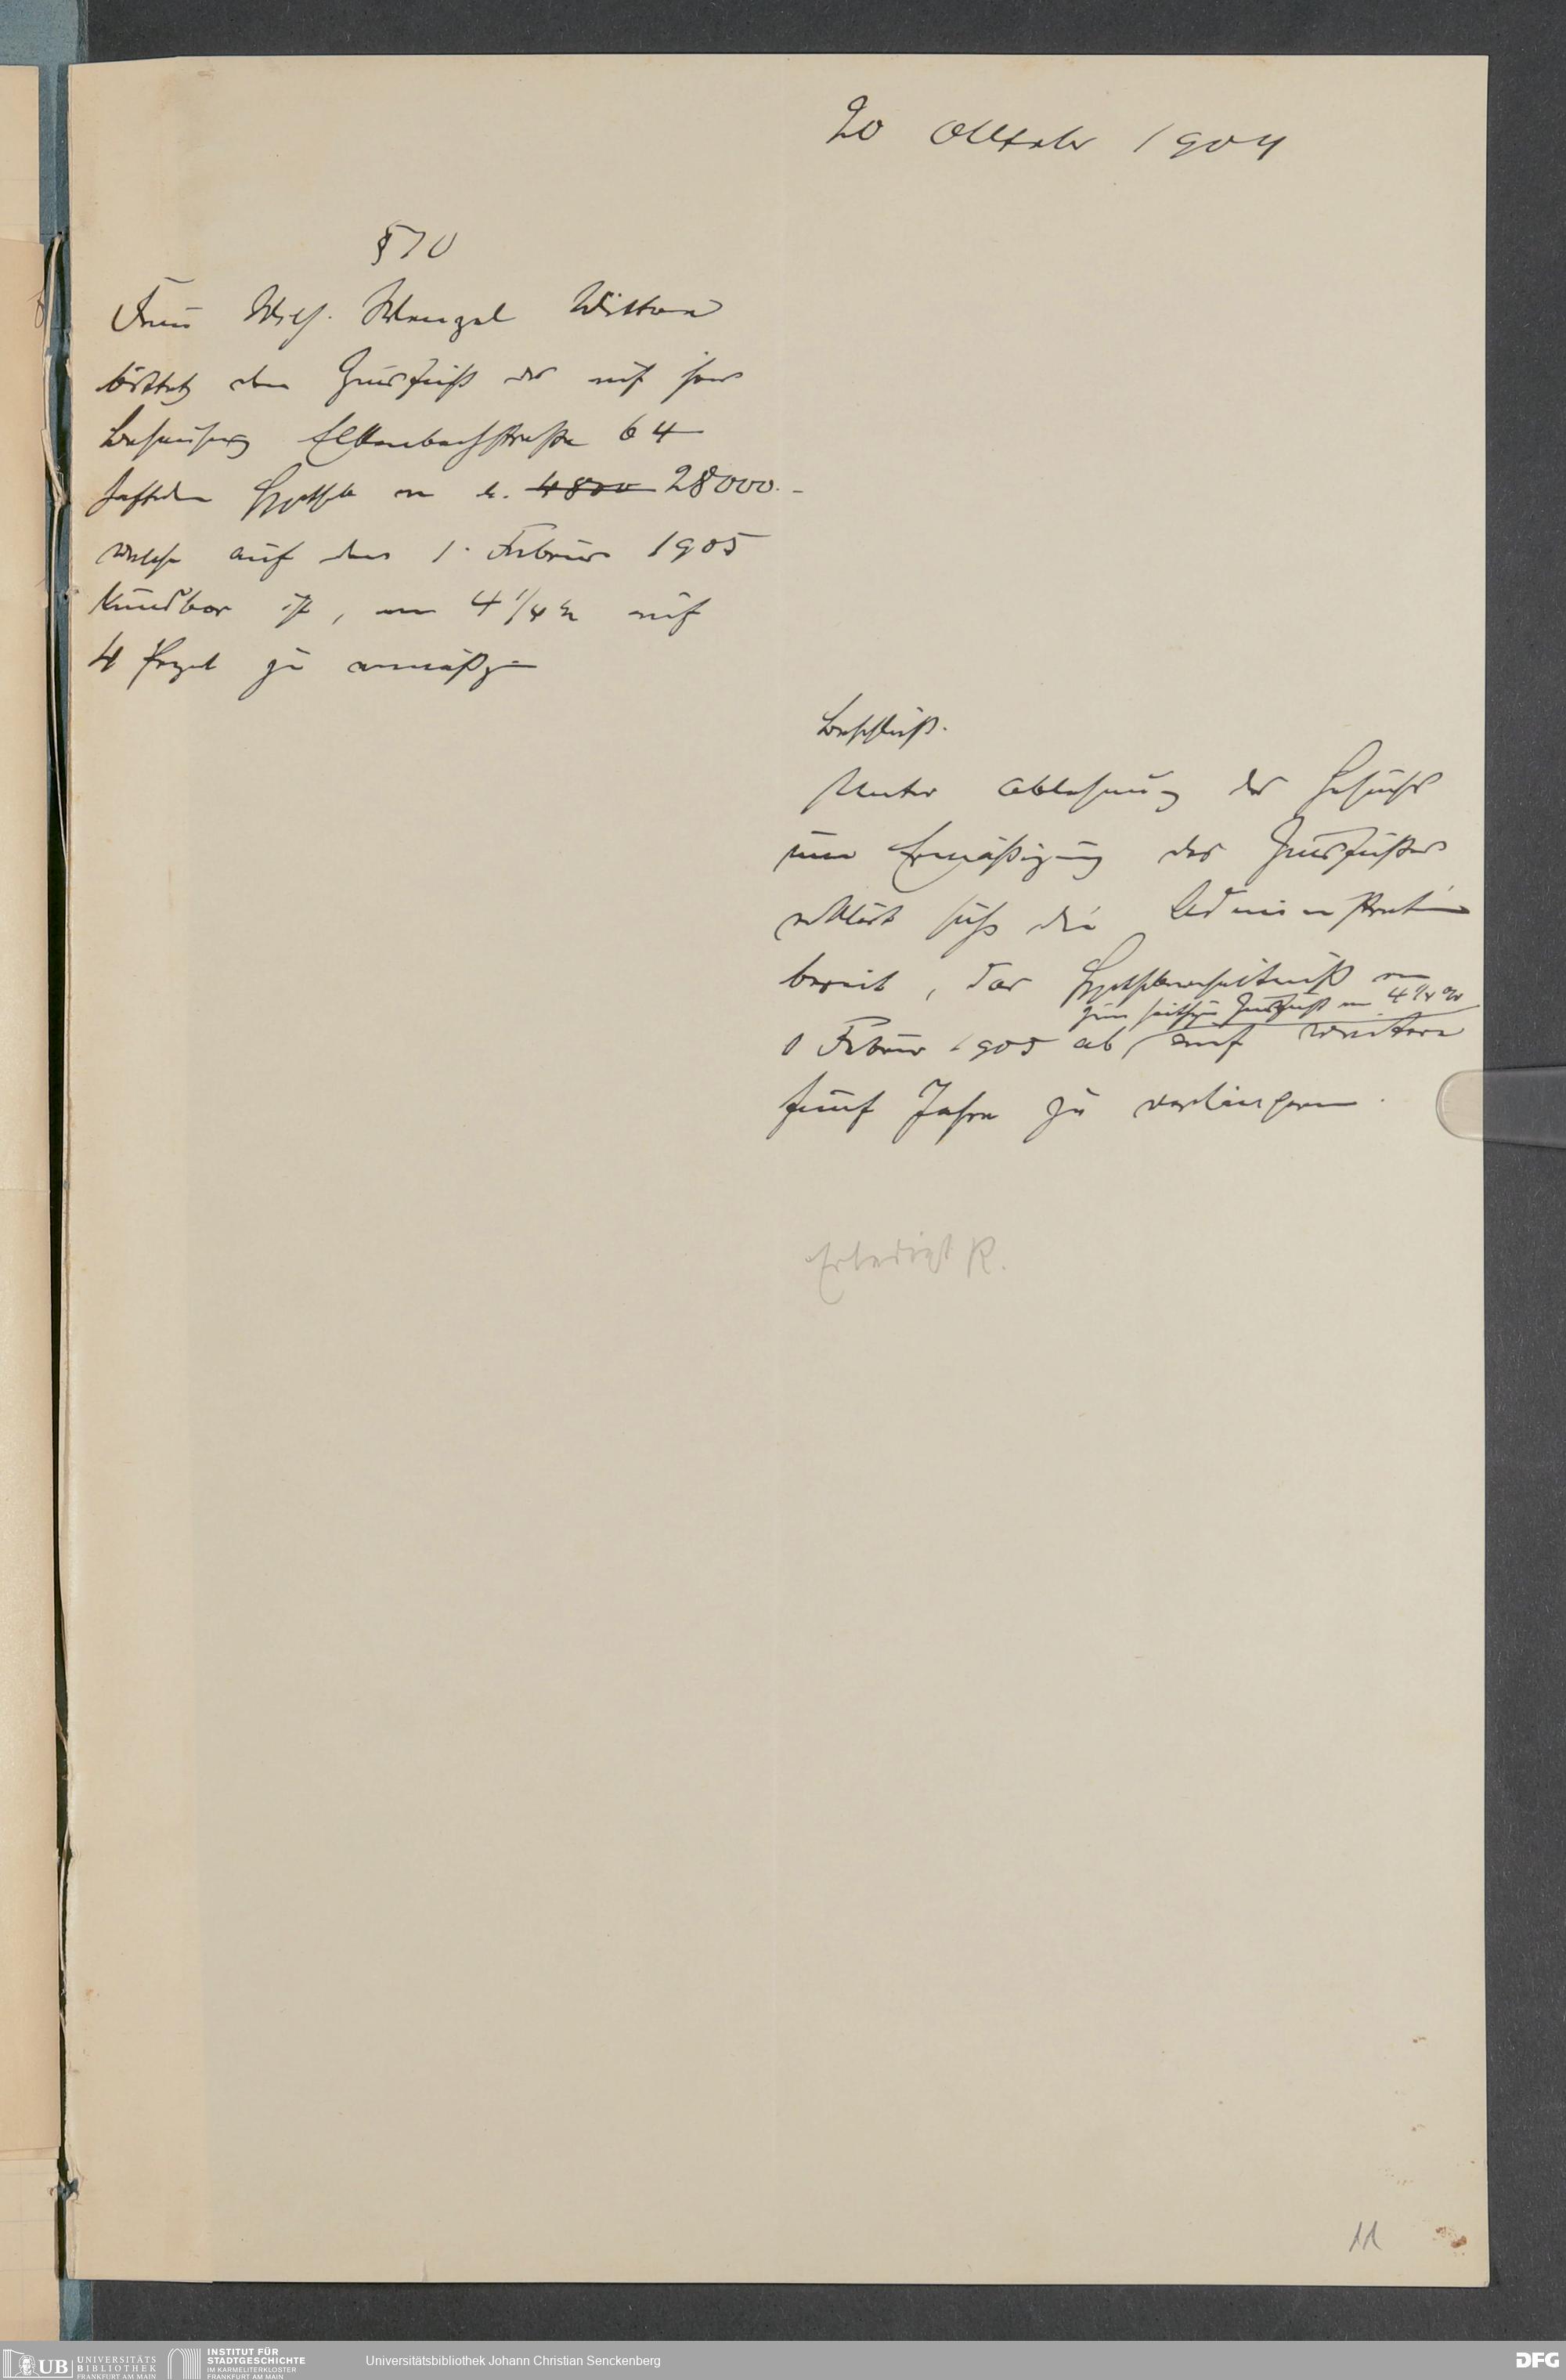 20 Oktober 1904
§ 70
Frau Wilh. Wenzel Wittwe
bittet den Zinsfuß der auf ihrer
Behausung Elkenbachstraße 64
haftenden Hypothek von M. 4800 28000.-
welche auf den 1. Februar 1905
kündbar ist, von 4 1/4 % auf
4 Prozent zu ermäßigen
Beschluß.
Unter Ablehnung des Gesuchs
um Ermäßigung des Zinsfußes
erklärt sich die Administration
bereit, das Hypothekenverhältniß vom
zum seitherigen Zinsfuß von 4 1/4 %
1 Februar 1905 ab, auf weitere
fünf Jahre zu verlängern.
Erledigt R.
11
UB UNIVERSITÄTS BIBLIOTHEK FRANKFURT AM MAIN
INSTITUT FÜR STADTGESCHICHTE IM KARMELITERKLOSTER FRANKFURT AM MAIN
Universitätsbibliothek Johann Christian Senckenberg
DFG